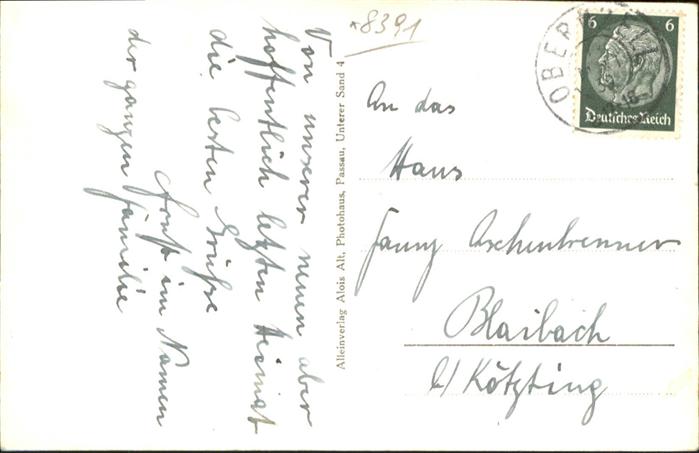 Von unserer neuen aber
hoffentlich letzten Heimat
die besten Grüße
Ernst im Namen
der ganzen Familie
*8391
Alleinverlag Alois Alt, Photohaus, Passau, Unterer Sand 4
6 6
Deutsches Reich
OBER
An das
Haus
Fanny Aschenbrenner
Blaibach
b/ Kötzting